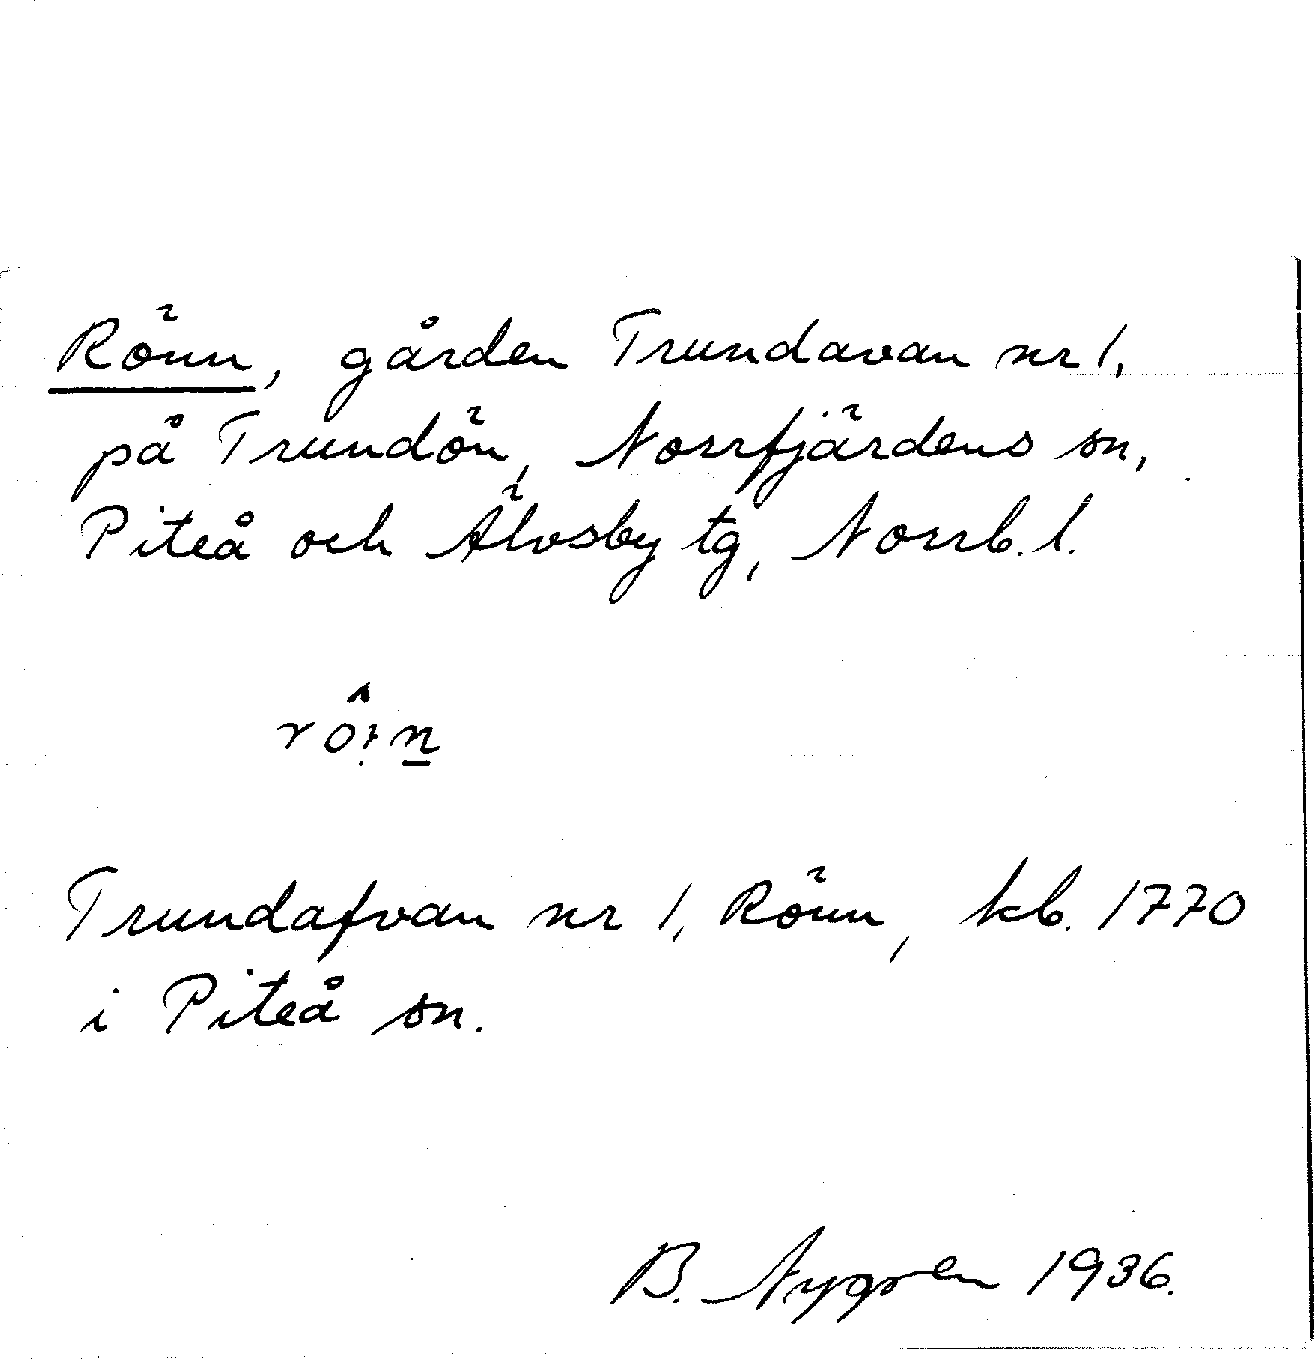 Rönn, gården Trundavan nr 1,
på Trundön, Norrfjärdens sn,
Piteå och Älvsby tg, Norrb. l.
Trundafvan nr 1, Rönn, kb. 1770
i Piteå sn.
B. Nygren 1936.